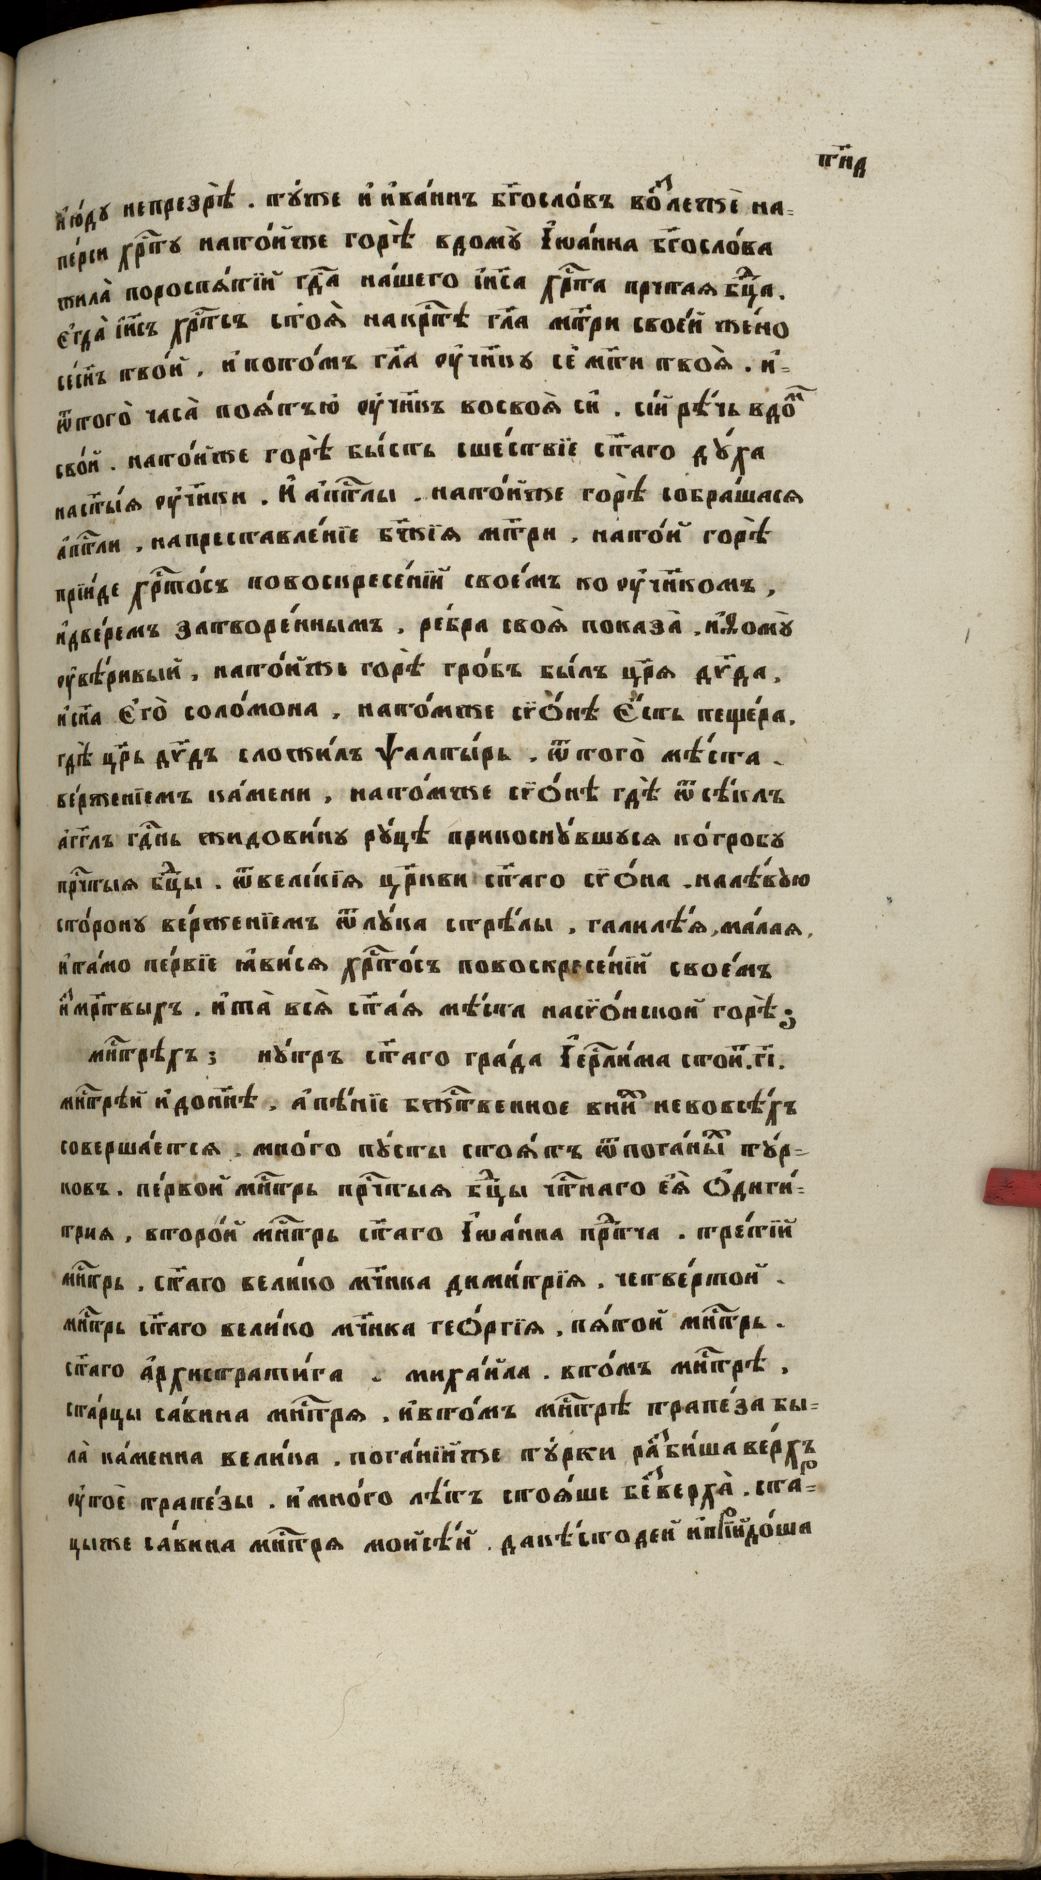 тн҃д
и҆ю́ду непрезрѣ̀ . ту́же и҆ и҆ва́ннъ бг҃осло́въ во́злежѐ на=
пе́рси хрⷭ҇ту нато́йже горѣ̀ вдомꙋ̀ і҆ѡа́нна бг҃осло́ва
жилà пороспѧ́тїй гдⷭ҇а на́шего і҆и҃са хрⷭ҇та прчⷭ҇таѧ бцⷣа .
є҆гда̀ і҆и҃съ хрⷭ҇тсъ стоѧ̀ накрⷭ҇тѣ гл҃а мт҃ри свое́й же́но
се́сн҃ъ тво́й , и҆ пото́мъ гл҃а ᲂу҆чн҃ку се̑ мт҃и твоѧ̀ . и҆=
ѿтого̀ часа̀ поѧ́тъю̀ ᲂу҆чн҃къ восвоѧ̀ си̑ . сі́й рѣ́чь вдо́ⷨ
сво́й . нато́йже горѣ̀ бы́сть сше́ствїе ст҃аго дꙋ́ха
наст҃ы́ѧ ᲂу҆чн҃ки . И҆ а҆пⷭ҇тлы . нато́йже горѣ̀ собра́шасѧ
а҆пⷭ҇тли , напреставле́нїе бж҃їѧ мт҃ри , нато́й горѣ̀
прїи́де хрⷭ҇то́съ повоскресе́нїй свое́мъ ко ᲂу҆чн҃комъ ,
и҆две́ремъ затворе́ннымъ , ре́бра своѧ̀ показа̀ , и҆Ѳомꙋ̀
ᲂу҆вѣ́ривый , нато́йже горѣ̀ гро́бъ бы́лъ цр҃ѧ дв҃да ,
исн҃а є҆го̀ соло́мона , нато́мже сїѻ́нѣ є҆́сть пеще́ра ,
гдѣ̀ цр҃ь дв҃дъ сложи́лъ ѱалты́рь . ѿтого̀ мѣ́ста .
ве́рженїемъ ка́мени , нато́мже сїѻ́нѣ гдѣ̀ ѿсѣ́клъ
а҆гг҃лъ гдⷭ҇нь жидови́ну рꙋ́цѣ прикоснꙋ́вшусѧ ко́гробу
прчⷭ҇тыѧ бцⷣы . ѿвели́кїѧ цр҃кви ст҃аго сїѻ́на . налѣ́вую
сто́рону ве́рженїемъ ѿлꙋ́ка стрѣ́лы , галилѣ́ѧ , ма́лаѧ ,
и҆та́мо пе́рвїе ꙗ҆ви́сѧ хрⷭ҇то́съ повоскресе́нїй свое́мъ
и҆змр҃твыхъ . и҆та̀ всѧ̀ ст҃а́ѧ мѣ́ста насїѻ́нской горѣ̀ ;
мⷭ҇трѣ́хъ ; нꙋ́тръ ст҃аго гра́да і҆ерⷭ҇ли́ма стои́тъ . г҃і .
мⷭ҇трѣ́й и҆дон҃нѣ , а҆пѣ́нїе бжⷭ҇твенное вни́хъ невовсѣ́хъ
соверша́етсѧ . мно́го пу́сты стоѧ́тъ ѿпога́ныхъ ту́р=
ковъ . пе́рвой мⷭ҇трь прчⷭ҇тыѧ бцⷣы чтⷭ҇наго е҆ѧ̀ ѻ҆диги́=
трия , второ́й мⷭ҇трь ст҃аго і҆ѡа́нна прⷣтча . тре́тїй
мⷭ҇трь , ст҃аго вели́ко мч҃ика дими́трїѧ , четве́ртой .
мⷭ҇трь ст҃аго вели́ко мч҃ика геѻ́ргїѧ , пѧ́той мⷭ҇трь .
ст҃аго а҆рхистрати́га . миха́ила . вто́мъ мⷭ҇трѣ̀ ,
ста́рцы са́вина мⷭ҇трѧ , и҆вто́мъ мⷭ҇трѣ̀ трапе́за бы=
ла̀ ка́менна вели́ка , пога́нїйже ту́рки ра́збиша ве́рхъ
ᲂу҆тоѐ трапе́зы . и҆мно́го лѣ́тъ стоѧ́ше безверха̀ . ста́р=
цыже са́вина мⷭ҇трѧ моисѣ́й . данѣ́стодей